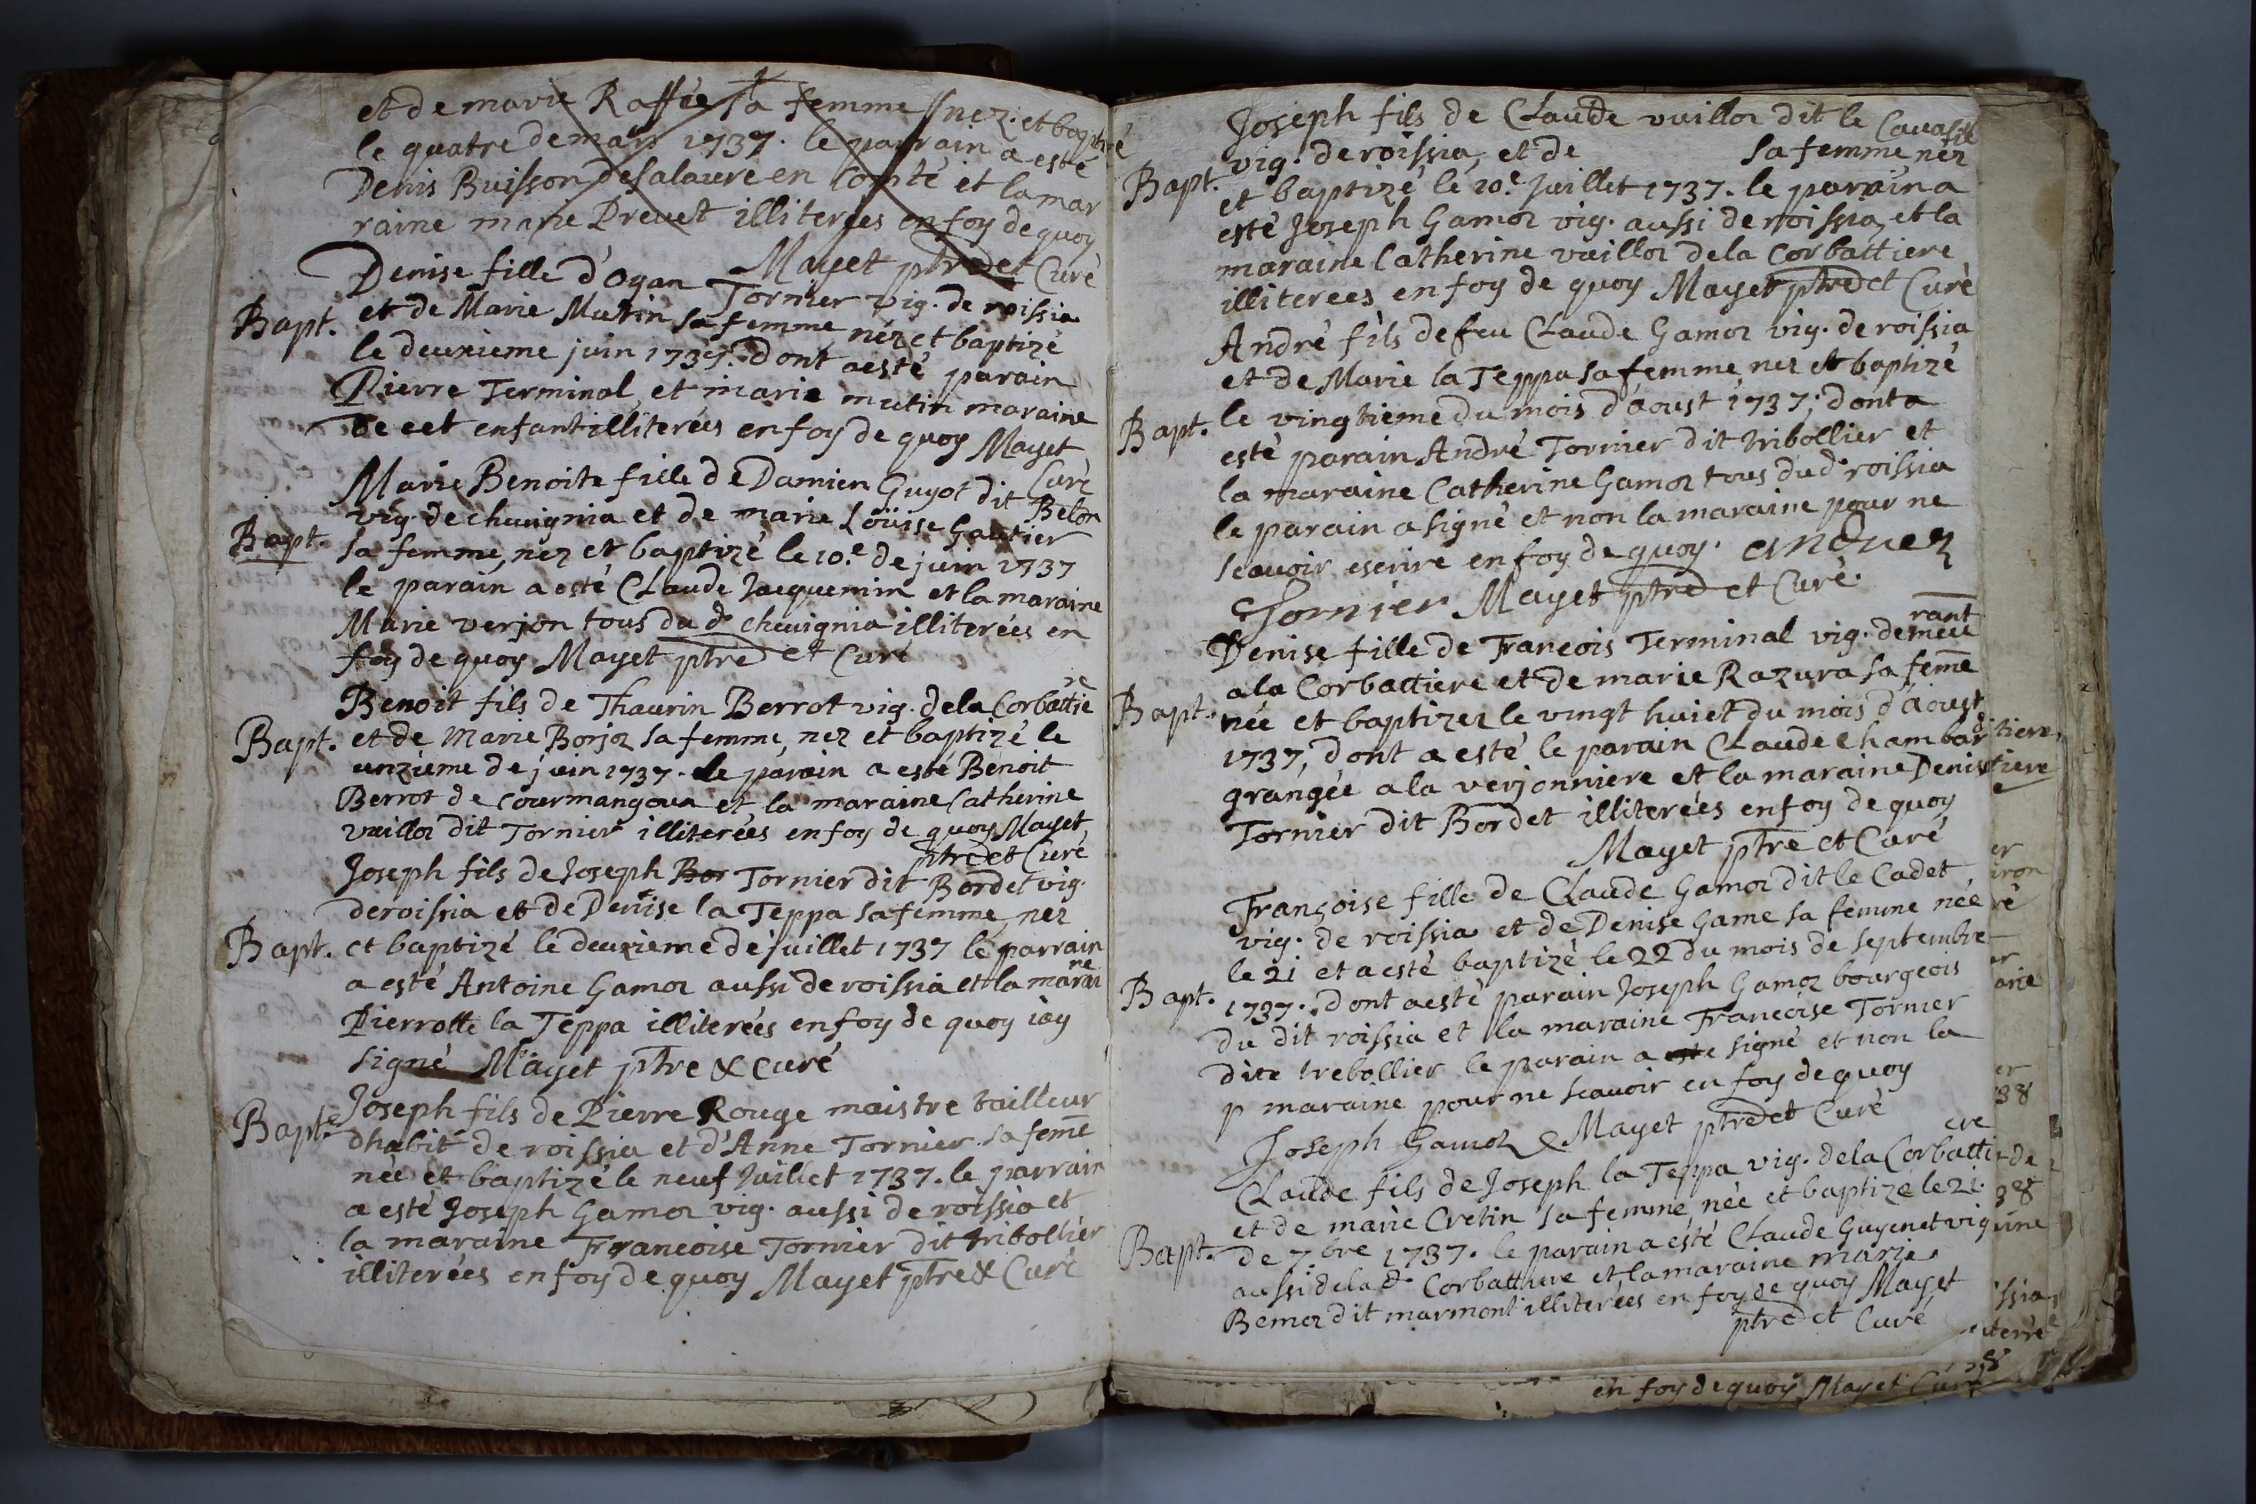 et de marie Raffie sa femme nez et baptizé
le quatre de mars 1737. le parrain a esté
Denis Buisson de salavre en Comté et la mar
raine marie Prevet illiterées en foy de quoy
Mayet ptre et Curé
Denise fille d'Oyan Tornier vig. de roissia
Bapt. et de Marie Mutin sa femme néz et baptizé
le deuxieme juin 1737. dont a esté parain
Pierre Terminal et marie mutin maraine
de cet enfant illiterées en foy de quoy Mayet
Curé
Marie Benoite fille de Damien Guyot dit Belon
vig. de chevignia et de marie Loüise Gautier
Bapt. sa femme, nez et baptizé le 10.e de juin 1737
le parain a esté Claude Jacquemin et la maraine
Marie verjon tous du d. chevignia illiterées en
foy de quoy Mayet ptre et Curé
Benoit fils de Thaurin Berrot vig. dela Corbattie
re
Bapt. et de Marie Borjoz sa femme, nez et baptizé le
unzieme de juin 1737. le parain a esté Benoit
Berrot de Courmangoux et la maraine Catherine
vuilloz dit Tornier illiterées en foy de quoy Mayet
ptre et Curé
Joseph fils de Joseph Bor Tornier dit Bordet vig.
de roissia et de Denise la Teppa sa femme, nez
Bapt. et baptizé le deuxieme de juillet 1737 le parrain
a esté Antoine Gamoz aussi de roissia et la marai
ne
Pierrotte la Teppa illiterées en foy de quoy iay
signé Mayet ptre & Curé
Joseph fils de Pierre Rouge maistre tailleur
Bapt. dhabit de roissia et d'Anne Tornier sa feme
née et baptizé le neuf Juillet 1737. le parrain
a esté Joseph Gamoz vig. aussi de roissia et
la maraine Francoise Tornier dit tribollier
illiterées en foy de quoy Mayet ptre & Curé
Joseph fils de Claude vuilloz dit le
vig. de roissia, et de sa femme néz
Bapt. et baptizé le 10.e Juillet 1737. le parain a
esté Joseph Gamoz vig. aussi de roissia, et la
maraine Catherine vuilloz dela Corbattiere
illiterees en foy de quoy Mayet ptre et Curé
André fils de feu Claude Gamoz vig. de roissia
et de Marie la Teppa sa femme nez et baptizé
Bapt. le vingtieme du mois d'aoust 1737; dont a
esté parain André Tornier dit tribollier et
la maraine Catherine Gamoz tous dud. roissia
le parain a signé et non la maraine pour ne
scavoir escrire en foy de quoy.
Tornier Mayet ptre et Curé.
Denise fille de Francois Terminal vig. demeu
rant
a la Corbattiere et de marie Razura sa feme
Bapt. née et baptizez le vingt huict du mois d'aoust
1737, dont a esté le parain Claude Chambard
grangée a la verjonniere et la maraine Denise
Tornier dit Bordet illiterées en foy de quoy
Mayet ptre et Curé
Françoise fille de Claude Gamoz dit le Cadet
vig. de roissia et de Denise Game sa femme née
le 21 et a esté baptizé le 22 du mois de septembre
Bapt. 1737. dont a esté parain Joseph Gamoz bourgeois
du dit roissia et la maraine Francoise Tornier
dite trebollier le parain a este signé et non la
p maraine pour ne scavoir en foy de quoy
Joseph Gamoz Mayet ptre et Curé
Claude fils de Joseph la Teppa vig. dela Corbatti
ere
et de marie Cretin sa femme, née et baptizé le 21.
Bapt. de 7.bre 1737. le parain a esté Claude Guyenet vig
aussi dela d. Corbattiere et la maraine marie
Bemoz dit marmont illiterées en foy de quoy Mayet
ptre et Curé
en foy de quoy Mayet Curé